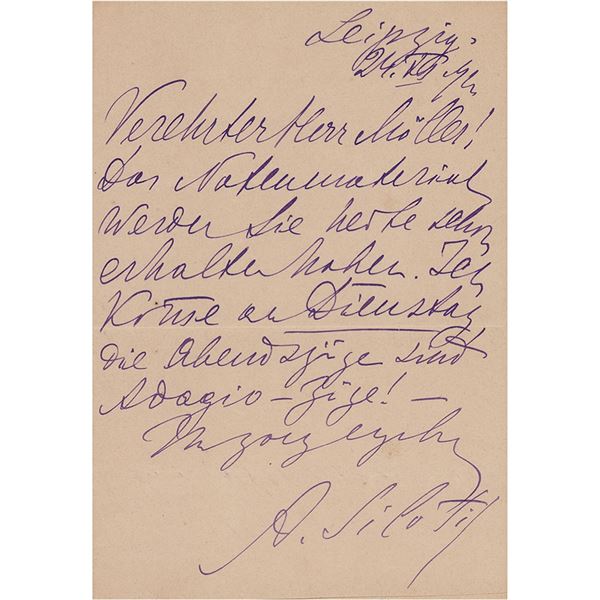 Leipzig.
24.
Verehrter Herr Möller!
Das Notenmaterial
werden Sie heute schon
erhalten haben. Ich
komme am Dienstag
die Abendzüge sind
Adagio-Züge! –
Ihr ganz ergebn
A. Siloti